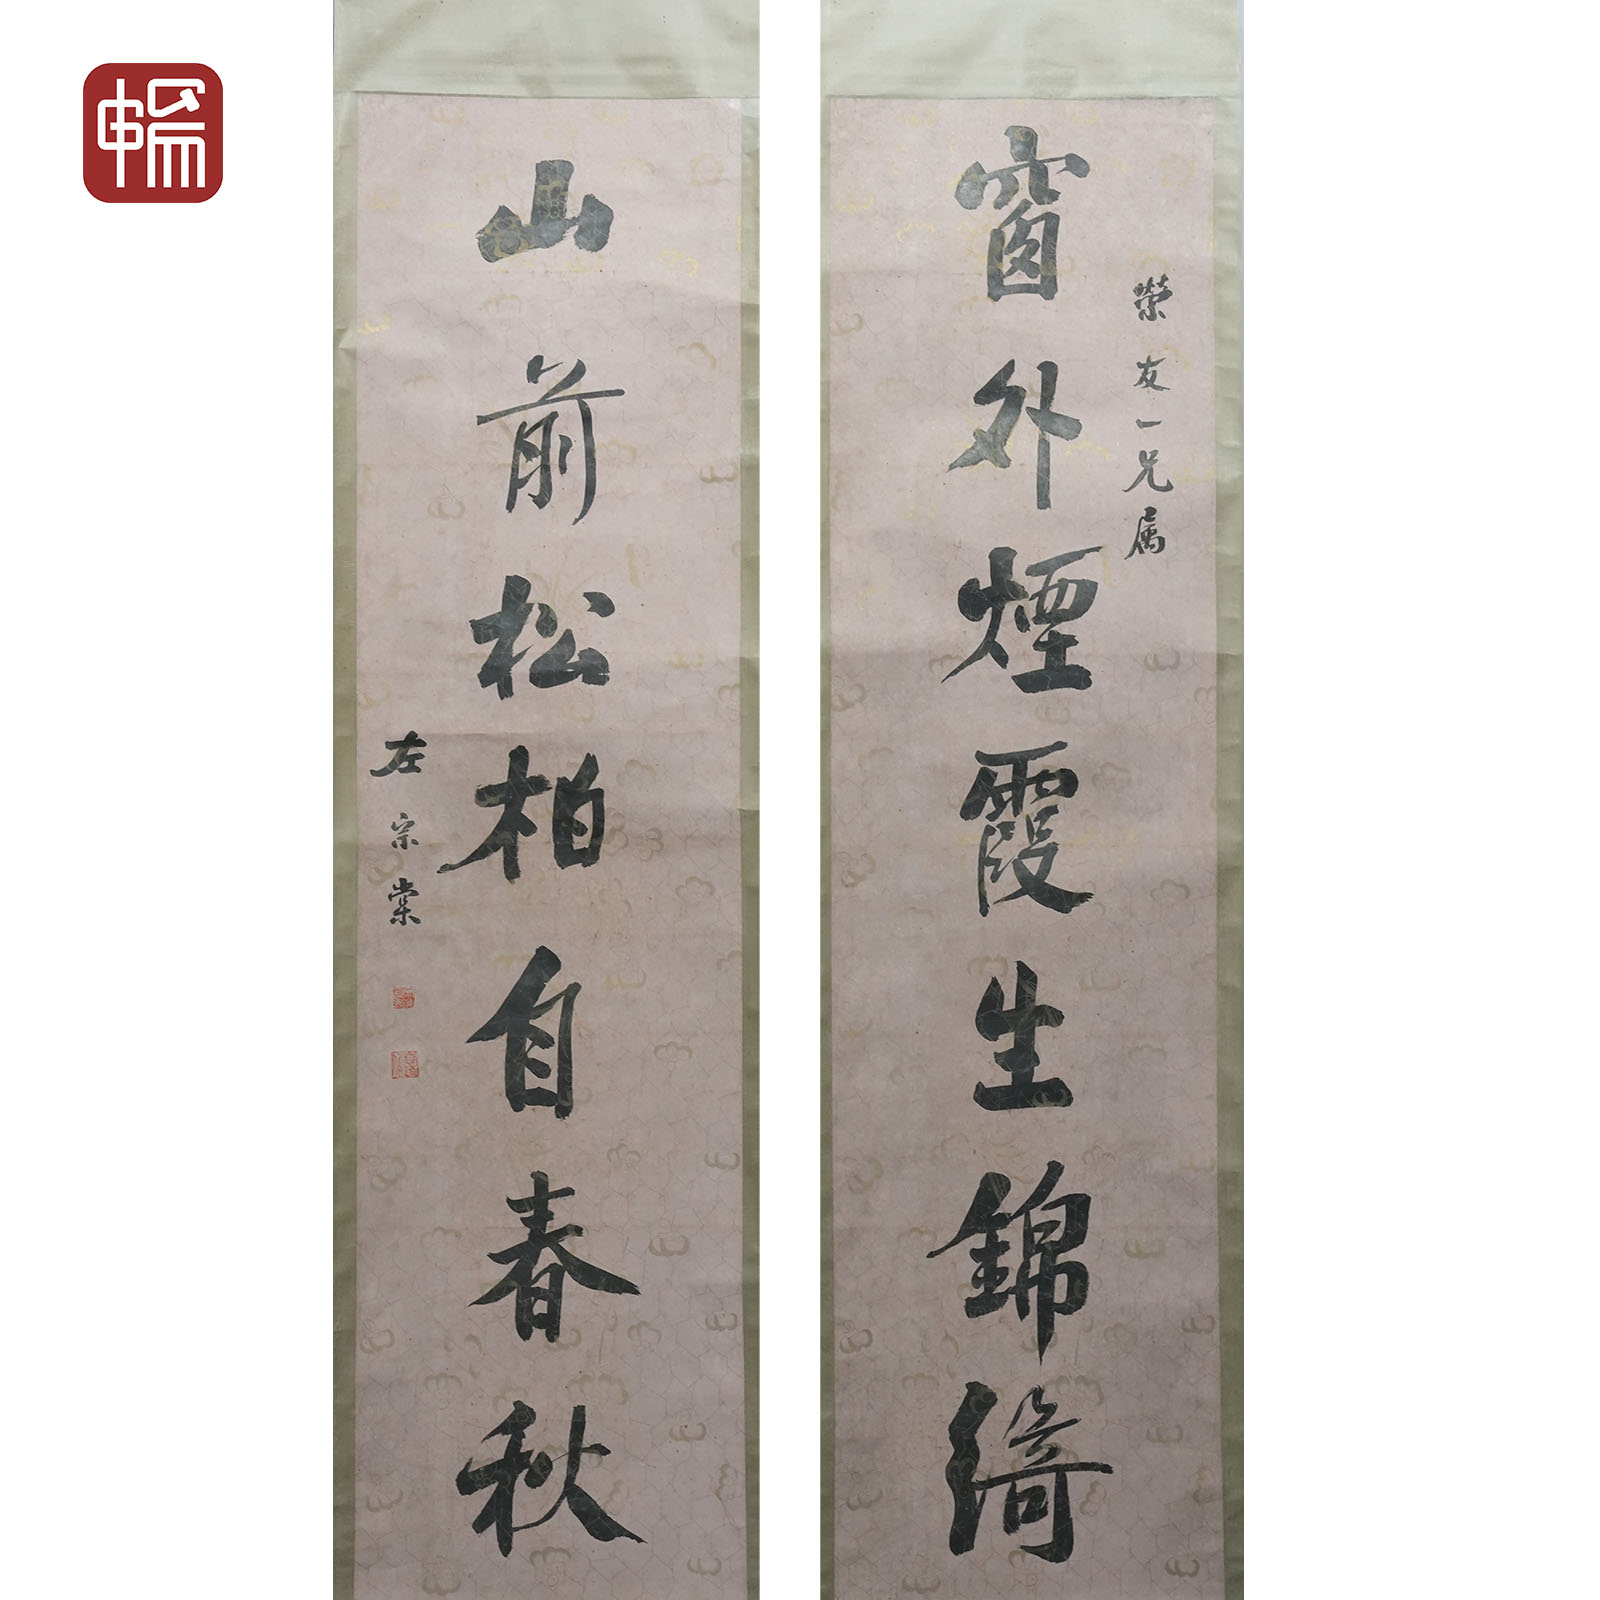 窗外煙霞生錦綺
榮友一兄属
山前松柏自春秋
左宗棠